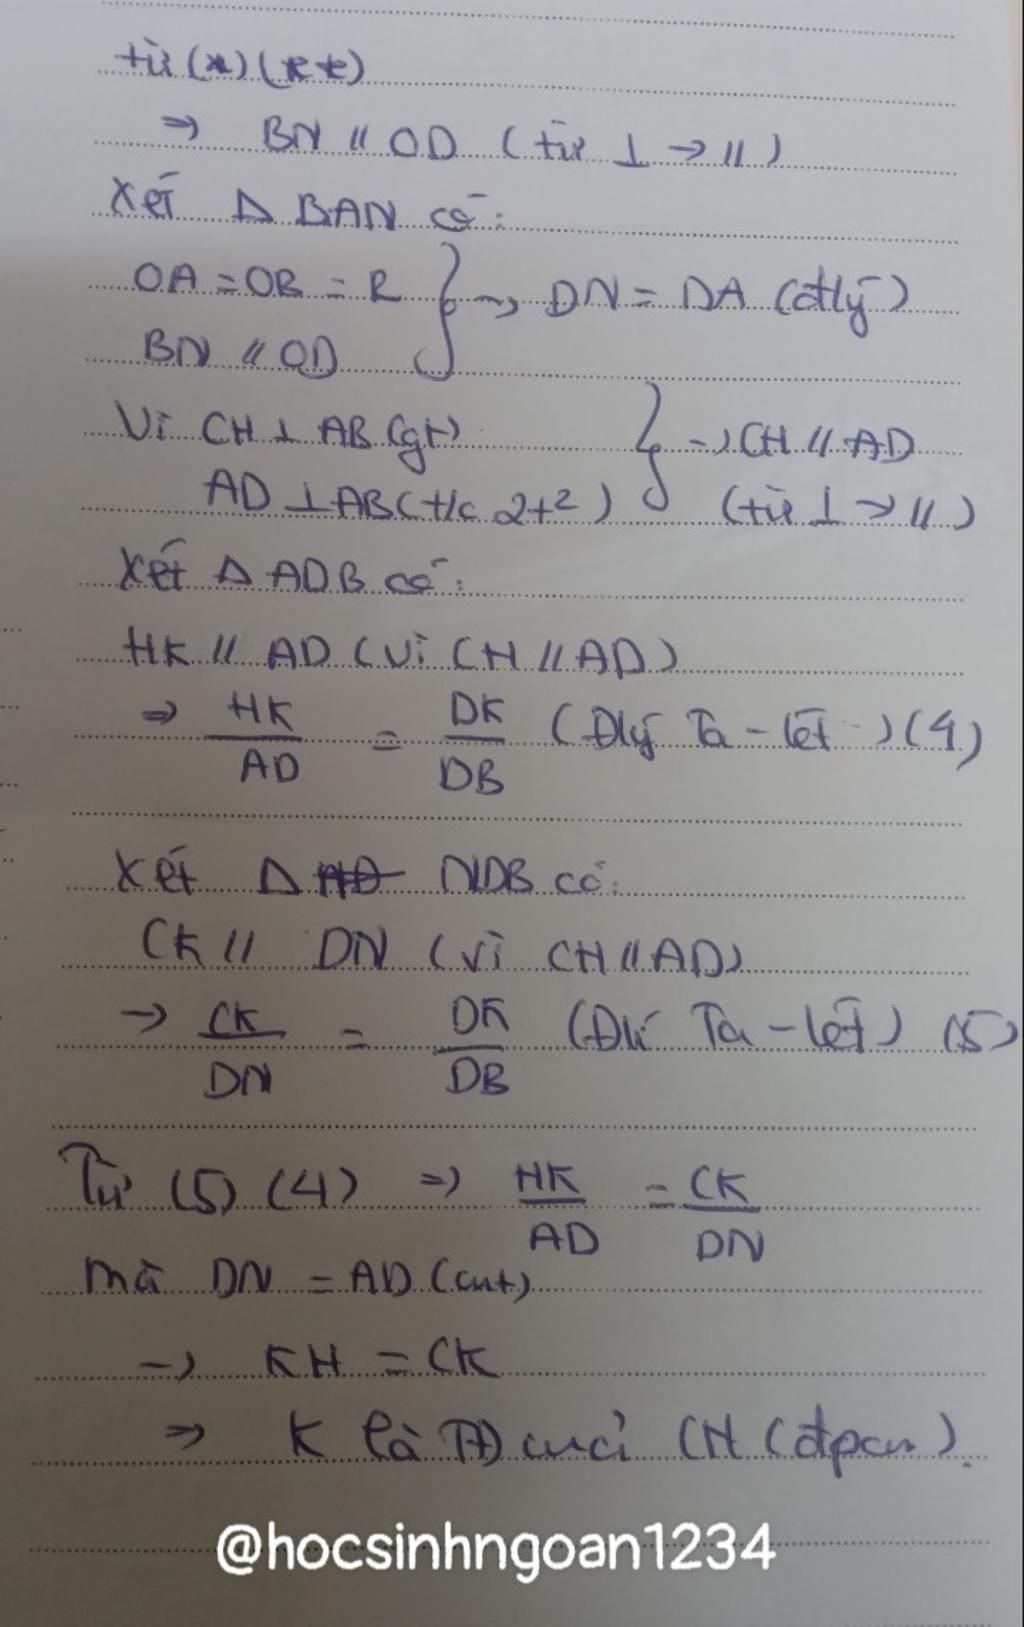 từ (*) (**)
⇒ BN // OD (từ ⊥ → //)
Xét Δ BAN có:
OA = OB = R } → DN = DA (đlý)
BN // OD
Vì CH ⊥ AB (gt) } → CH // AD
AD ⊥ AB (t/c 2t²) (từ ⊥ → //)
Xét Δ ADB có:
HK // AD (vì CH // AD)
⇒ HK/AD = DK/DB (Đlý Ta-lét) (4)
Xét Δ NDB có:
CK // DN (vì CH // AD)
→ CK/DN = DK/DB (Đlí Ta-lét) (5)
Từ (5) (4) ⇒ HK/AD = CK/DN
mà DN = AD (cmt)
→ KH = CK
⇒ K là TĐ của CH (đpcm).
@hocsinhngoan1234